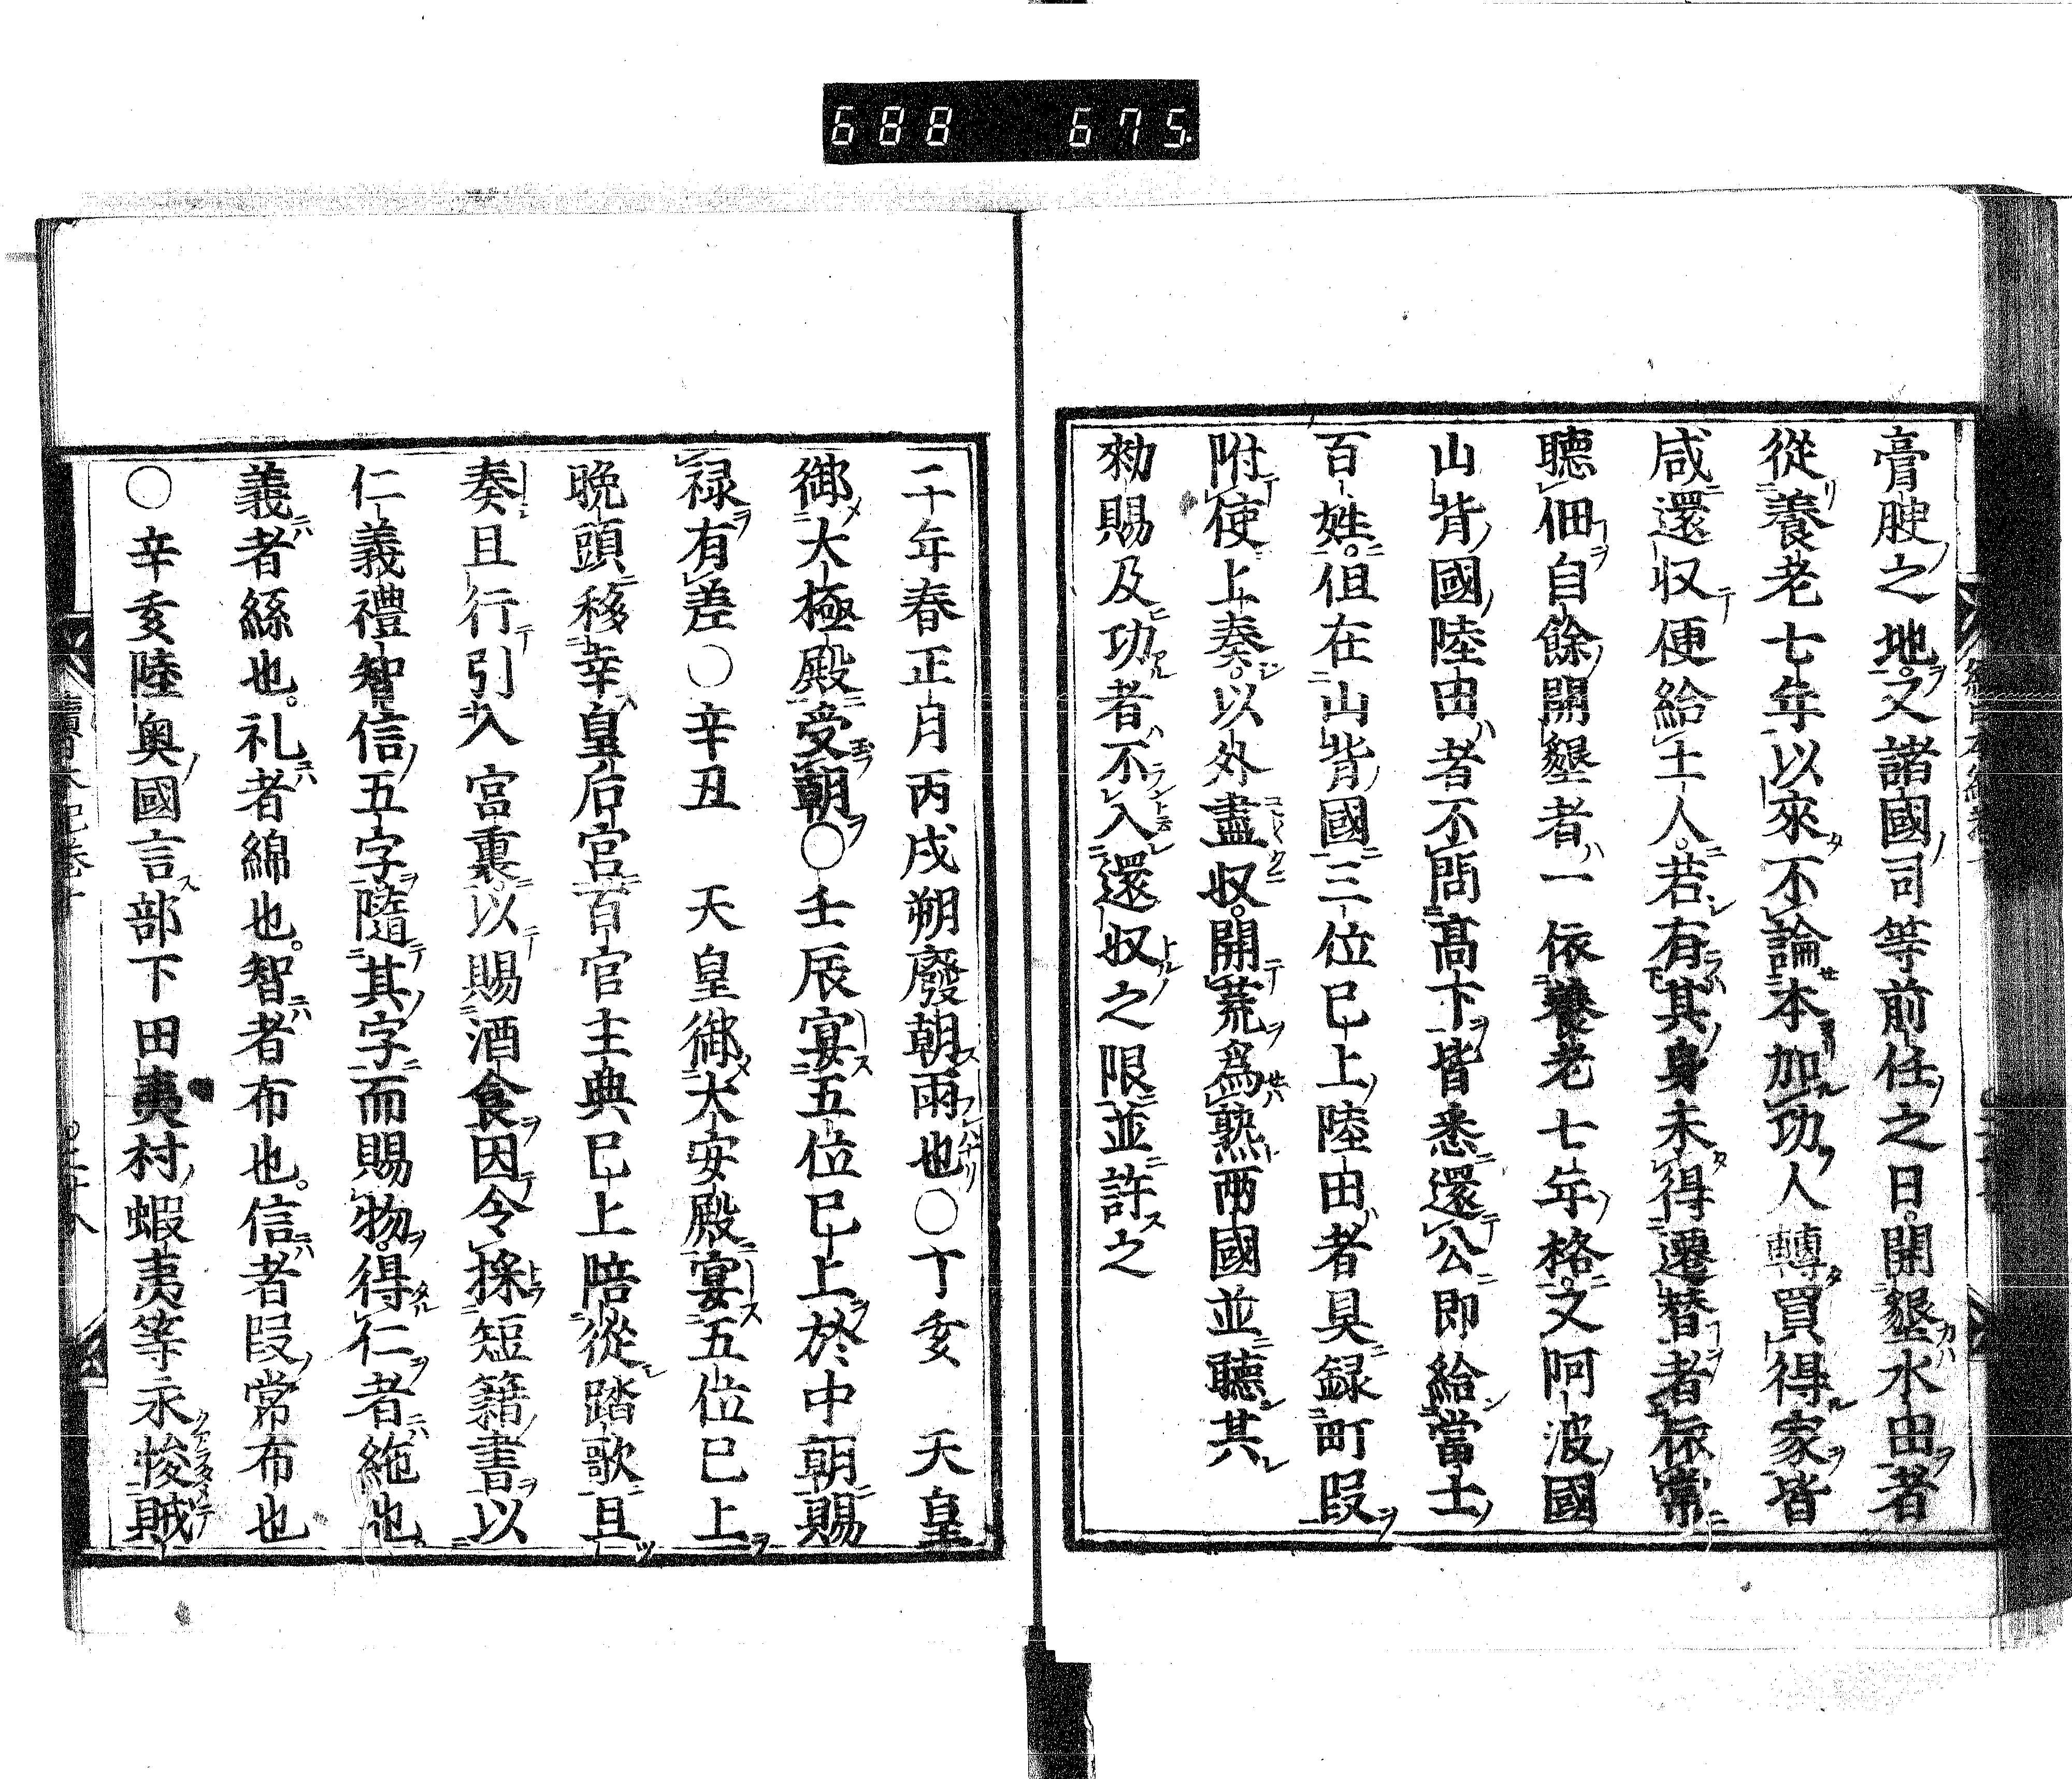 688 675
膏腴之地又諸國司等前任之日開墾水田者
從養老七年以來不論本加功人轉買得家皆
咸還収便給土人若有其身未得遷替者依常
聴佃自餘開墾者一依養老七年格又阿波國
山背國陸田者不問髙下皆悉還公即給當土
百姓但在山背國三位已上陸田者具録町段
附使上奏以外盡収開荒爲熟兩國並聴其
勑賜及功者不入還収之限並許之
二十年春正月丙戌朔廢朝雨也〇丁亥 天皇
御大極殿受朝〇壬辰宴五位已上於中朝賜
禄有差〇辛丑 天皇御大安殿宴五位已上
晩頭移幸皇后宮百官主典已上陪從踏歌且
奏且行引入宮裏以賜酒食因令採短籍書以
仁義禮智信五字隨其字而賜物得仁者絁也
義者絲也礼者綿也智者布也信者段常布也
〇辛亥陸奥國言部下田夷村蝦夷等永悛賊